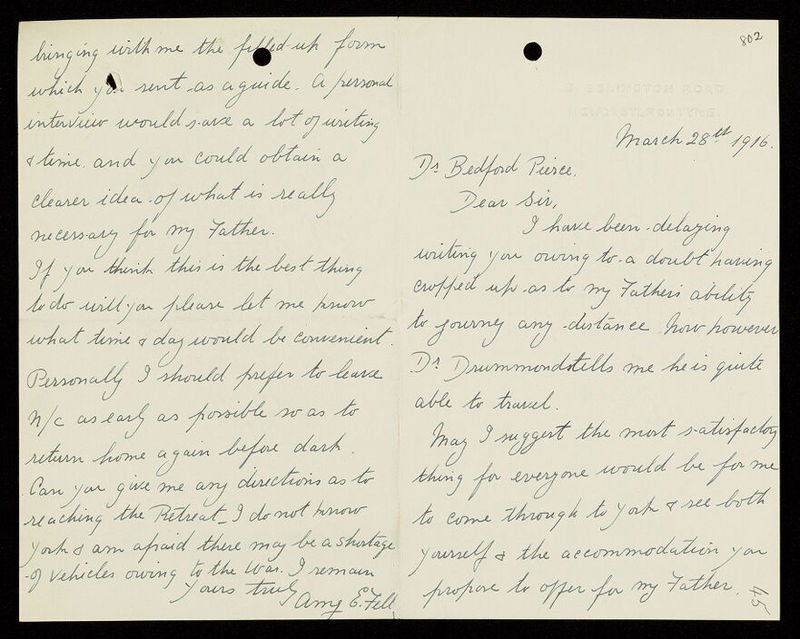 802
March 28th 1916.
Dr Bedford Pierce.
Dear Sir,
I have been delaying
writing you owing to a doubt having
cropped up as to my Father's ability
to journey any distance. Now however
Dr Drummond tells me he is quite
able to travel.
May I suggest the most satisfactory
thing for everyone would be for me
to come through to York & see both
yourself & the accommodation you
propose to offer for my Father.
45
bringing with me the filled-up form
which you sent as a guide. A personal
interview would save a lot of writing
& time and you could obtain a
clearer idea of what is really
necessary for my Father.
If you think this is the best thing
to do will you please let me know
what time & day would be convenient.
Personally I should prefer to leave
N/c as early as possible so as to
return home again before dark.
Can you give me any directions as to
reaching the Retreat_ I do not know
York & am afraid there may be a shortage
of vehicles owing to the War. I remain
Yours truly
Amy E. Fell